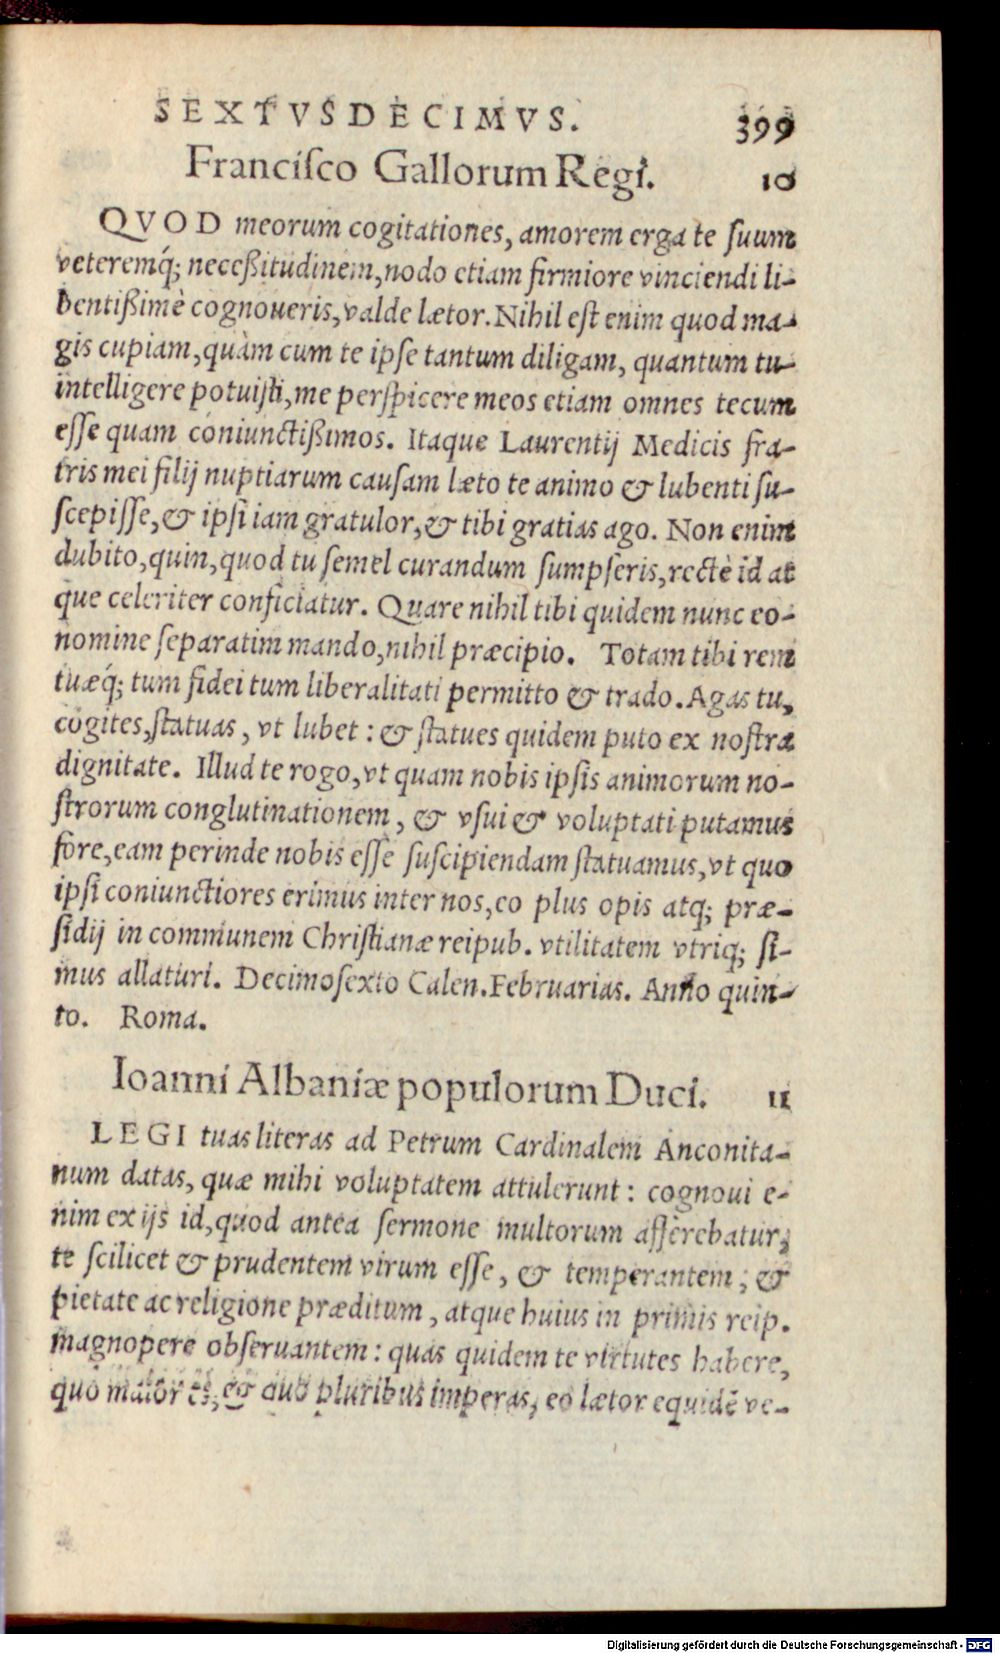 SEXTVSDECIMVS. 399
Franciſco Gallorum Regi. 10
QVOD meorum cogitationes, amorem erga te ſuum
veteremq́; neceßitudinem, nodo etiam firmiore vinciendi li-
bentißimè cognoueris, valde lætor. Nihil eſt enim quod ma-
gis cupiam, quàm cum te ipſe tantum diligam, quantum tu
intelligere potuiſti, me perſpicere meos etiam omnes tecum
eſſe quam coniunctißimos. Itaque Laurentij Medicis fra-
tris mei filij nuptiarum cauſam læto te animo & lubenti ſu-
ſcepiſſe, & ipſi iam gratulor, & tibi gratias ago. Non enim
dubito, quin, quod tu ſemel curandum ſumpſeris, rectè id at
que celeriter conficiatur. Quare nihil tibi quidem nunc eo-
nomine ſeparatim mando, nihil præcipio. Totam tibi rem
tuæq́; tum fidei tum liberalitati permitto & trado. Agas tu,
cogites, ſtatuas, vt lubet: & ſtatues quidem puto ex noſtra
dignitate. Illud te rogo, vt quam nobis ipſis animorum no-
ſtrorum conglutinationem, & vſui & voluptati putamus
fore, eam perinde nobis eſſe ſuſcipiendam ſtatuamus, vt quo
ipſi coniunctiores erimus inter nos, eo plus opis atq; præ-
ſidij in communem Chriſtianæ reipub. vtilitatem vtriq; ſi-
mus allaturi. Decimoſexto Calen. Februarias. Anno quin-
to. Roma.
Ioanni Albaniæ populorum Duci. 11
LEGI tuas literas ad Petrum Cardinalem Anconita-
num datas, quæ mihi voluptatem attulerunt: cognoui e-
nim ex ijs id, quod antea ſermone multorum afferebatur,
te ſcilicet & prudentem virum eſſe, & temperantem, &
pietate ac religione præditum, atque huius in primis reip.
magnopere obſeruantem: quas quidem te virtutes habere,
quo maior es, & quo pluribus imperas, eo lætor equidẽ ve-
Digitalisierung gefördert durch die Deutsche Forschungsgemeinschaft - DFG